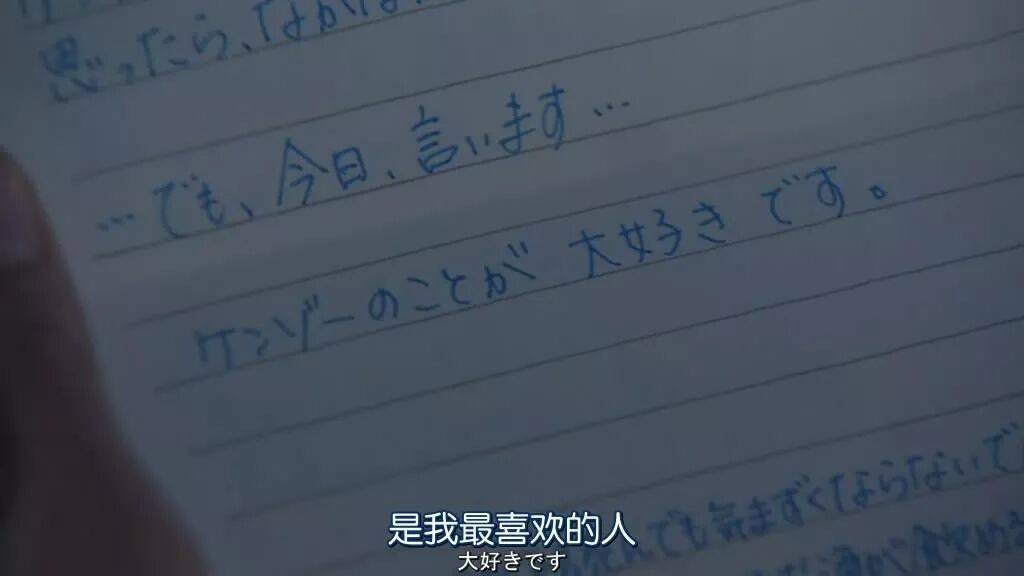 思ったら、なかな
…でも、今日、言います…
ケンゾーのことが 大好き です。
でも気まずくならないで
酒が飲める
是我最喜欢的人
大好きです